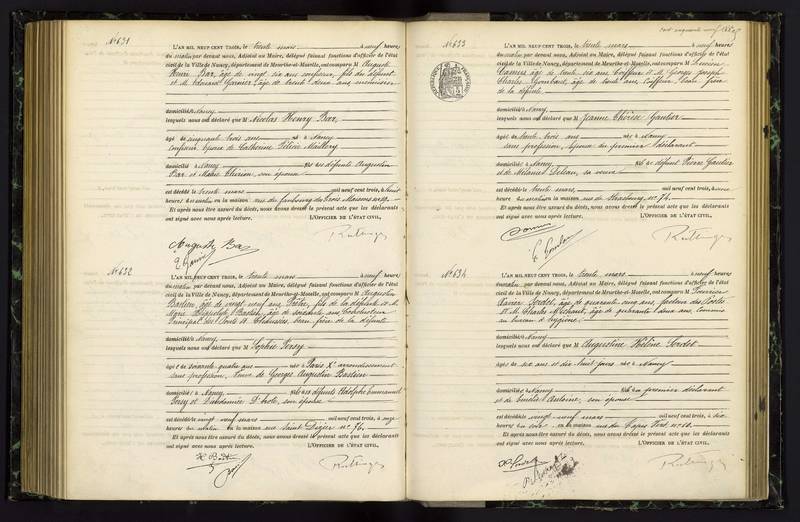 N° 631
L'AN MIL NEUF CENT TROIS, le trente mars à neuf heures
du matin par devant nous, Adjoint au Maire, délégué faisant fonctions d'officier de l'état
civil de la Ville de Nancy, département de Meurthe-et-Moselle, ont comparu M Auguste
Henri Bar, âgé de vingt six ans confiseur, fils du défunt
et M. Edouard Garnier, âgé de trente deux ans
domicilié à Nancy
lesquels nous ont déclaré que M Nicolas Henry Bar,
âgé de cinquante trois ans né à Nancy
confiseur, époux de Catherine Félicie
domicilié à Nancy fils de défunts Augustin
Bar et Marie son épouse
est décédé le trente mars mil neuf cent trois, à huit
heures du matin en la maison rue du faubourg des Trois Maisons n°
Et après nous être assuré du décès, nous avons dressé le présent acte que les déclarants
ont signé avec nous après lecture. L'OFFICIER DE L'ÉTAT CIVIL,
Auguste Bar
N° 632
L'AN MIL NEUF CENT TROIS, le trente mars à neuf heures
du matin par devant nous, Adjoint au Maire, délégué faisant fonctions d'officier de l'état
civil de la Ville de Nancy, département de Meurthe-et-Moselle, ont comparu M Augustin
Bastien, âgé de vingt neuf ans, fils de la défunte et M.
Bastien, âgé de soixante ans Conducteur
Principal des Ponts et Chaussées, beau frère de la défunte
domiciliés à Nancy
lesquels nous ont déclaré que M Sophie
âgée de soixante quatre ans née à Paris X° arrondissement
sans profession, veuve de Georges Augustin Bastien
domiciliée à Nancy fille de défunts Adolphe Emmanuel
et son épouse
est décédée le vingt neuf mars mil neuf cent trois, à onze
heures du matin en la maison rue Saint Dizier n° 76.
Et après nous être assuré du décès, nous avons dressé le présent acte que les déclarants
ont signé avec nous après lecture. L'OFFICIER DE L'ÉTAT CIVIL,
N° 633
L'AN MIL NEUF CENT TROIS, le trente mars à neuf heures
du matin par devant nous, Adjoint au Maire, délégué faisant fonctions d'officier de l'état
civil de la Ville de Nancy, département de Meurthe-et-Moselle, ont comparu M Lucien
âgé de trente six ans Coiffeur et M. Georges Joseph
Charles âgé de trente ans, Coiffeur, beau frère
de la défunte
domiciliés à Nancy
lesquels nous ont déclaré que M Jeanne Thérèse Gautier
âgée de trente trois ans née à Nancy
sans profession, épouse du premier déclarant
domiciliée à Nancy fille de défunt Pierre Gautier
et de Mélanie sa veuve
est décédée le trente mars mil neuf cent trois, à une
heure du matin en la maison rue de Strasbourg n° 74.
Et après nous être assuré du décès, nous avons dressé le présent acte que les déclarants
ont signé avec nous après lecture. L'OFFICIER DE L'ÉTAT CIVIL,
N° 634
L'AN MIL NEUF CENT TROIS, le trente mars à neuf heures
du matin par devant nous, Adjoint au Maire, délégué faisant fonctions d'officier de l'état
civil de la Ville de Nancy, département de Meurthe-et-Moselle, ont comparu M
Xavier âgé de quarante cinq ans, facteur des Postes
et M. Charles Michaut, âgé de quarante deux ans, commis
au bureau d'hygiène
domiciliés à Nancy
lesquels nous ont déclaré que M Augustine Hélène
âgée de six ans et dix huit jours née à Nancy
domiciliée à Nancy fille du premier déclarant
et de son épouse
est décédée le vingt neuf mars mil neuf cent trois, à six
heures du soir en la maison rue du Tapis Vert n°
Et après nous être assuré du décès, nous avons dressé le présent acte que les déclarants
ont signé avec nous après lecture. L'OFFICIER DE L'ÉTAT CIVIL,